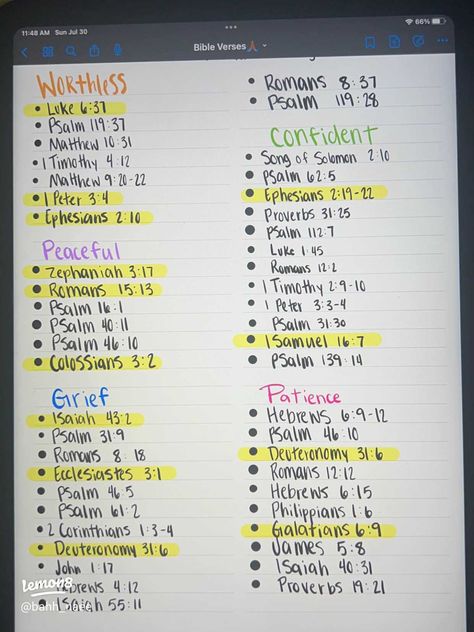 11:48 AM Sun Jul 30
66%
Bible Verses🙏🏾
Worthless
• Luke 6:37
• Psalm 119:37
• Matthew 10:31
• 1 Timothy 4:12
• Matthew 9:20-22
• 1 Peter 3:4
• Ephesians 2:10
Peaceful
• Zephaniah 3:17
• Romans 15:13
• Psalm 16:1
• Psalm 40:11
• Psalm 46:10
• Colossians 3:2
Grief
• Isaiah 43:2
• Psalm 31:9
• Romans 8:18
• Ecclesiastes 3:1
• Psalm 46:5
• Psalm 61:2
• 2 Corinthians 1:3-4
• Deuteronomy 31:6
• John 1:17
Hebrews 4:12
• Isaiah 55:11
• Romans 8:37
• Psalm 119:28
Confident
• Song of Solomon 2:10
• Psalm 62:5
• Ephesians 2:19-22
• Proverbs 31:25
• Psalm 112:7
• Luke 1:45
• Romans 12:2
• 1 Timothy 2:9-10
• 1 Peter 3:3-4
• Psalm 31:30
• 1 Samuel 16:7
• Psalm 139:14
Patience
• Hebrews 6:9-12
• Psalm 46:10
• Deuteronomy 31:6
• Romans 12:12
• Hebrews 6:15
• Philippians 1:6
• Galatians 6:9
• James 5:8
• Isaiah 40:31
• Proverbs 19:21
lemon8